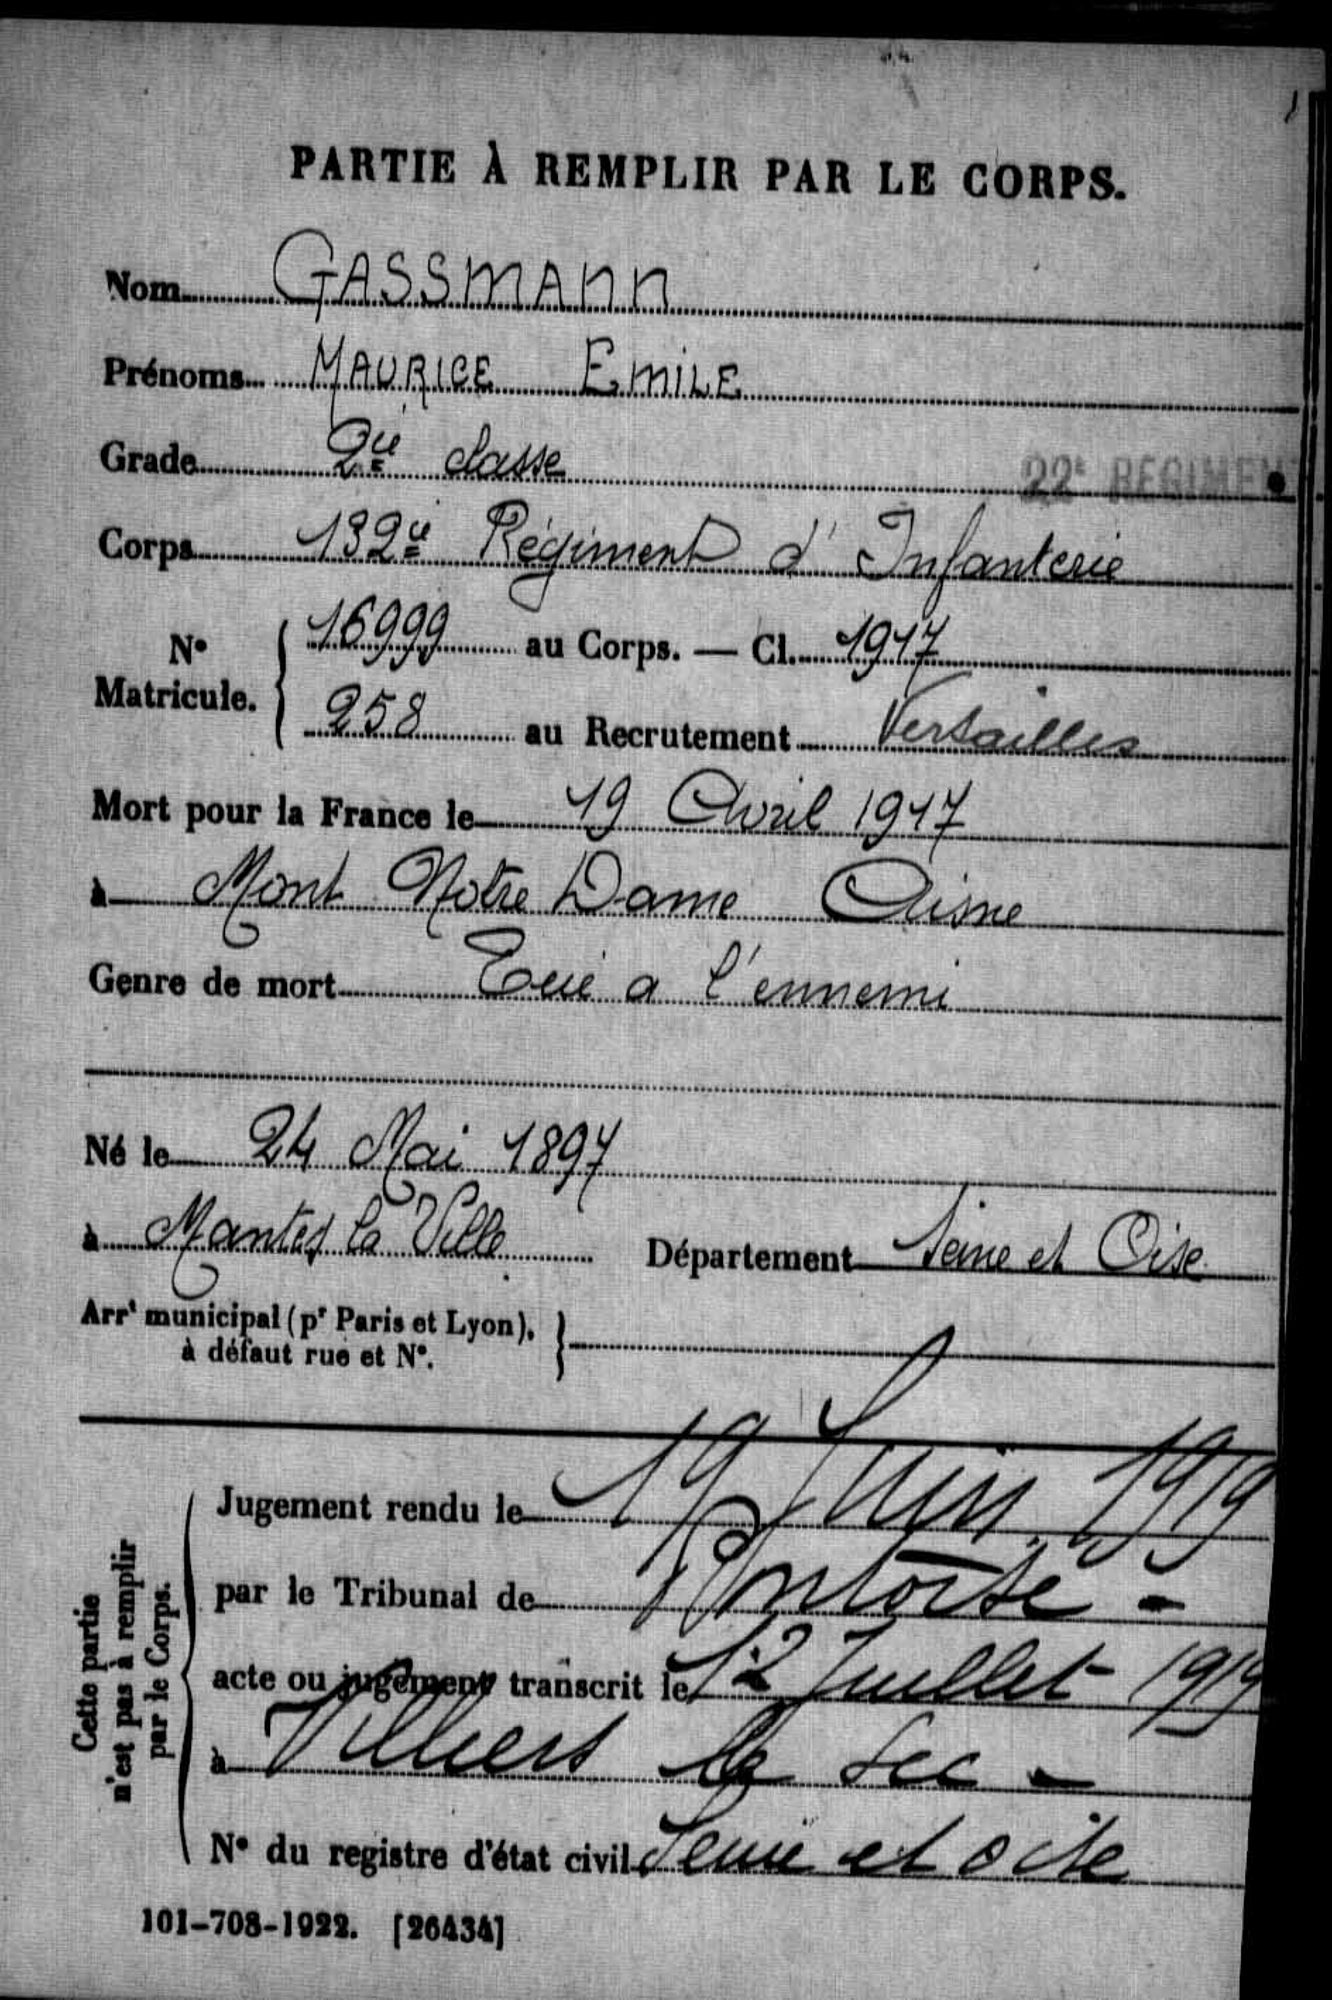 PARTIE À REMPLIR PAR LE CORPS.
Nom GASSMANN
Prénoms MAURICE EMILE
Grade 2ie classe
22e REGIMEN
Corps 132ie Régiment d'Infanterie
No Matricule. 16999 au Corps. — Cl. 1917
258 au Recrutement Versailles
Mort pour la France le 19 Avril 1917
à Mont Notre Dame Aisne
Genre de mort Tué a l'ennemi
Né le 24 Mai 1897
à Mantes la Ville Département Seine et Oise
Arrt municipal (pr Paris et Lyon),
à défaut rue et No.
Cette partie
n'est pas à remplir
par le Corps.
Jugement rendu le 19 Juin 1919
par le Tribunal de Pontoise -
acte ou jugement transcrit le 12 Juillet 1919
à Villiers le Sec -
No du registre d'état civil Seine et Oise
101-708-1922. [26434]